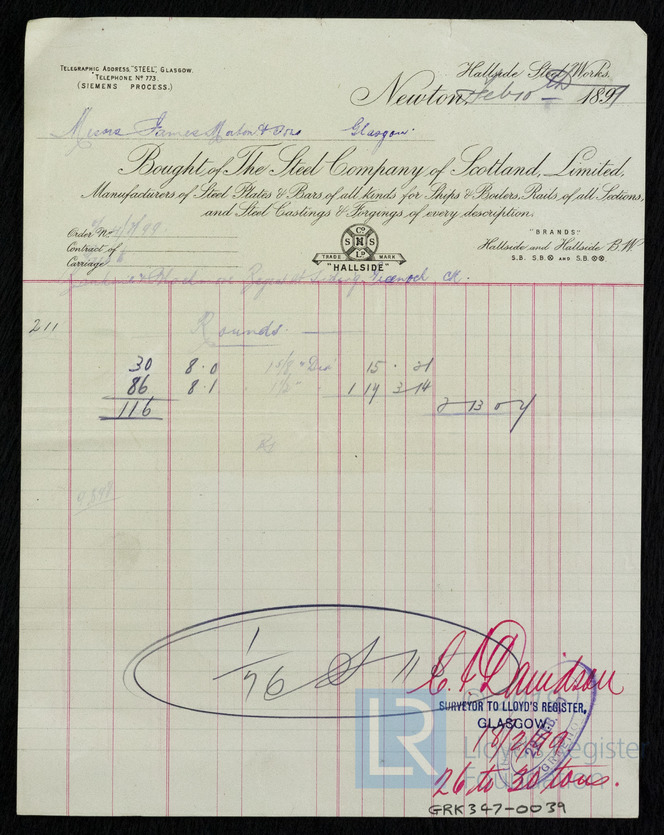 TELEGRAPHIC ADDRESS, "STEEL", GLASGOW.
TELEPHONE Nº 773.
(SIEMENS PROCESS.)
Hallside Steel Works,
Newton, Feb 10th 1899
Messrs James Morton & Glasgow.
Bought of The Steel Company of Scotland, Limited,
Manufacturers of Steel Plates & Bars of all kinds for Ships & Boilers, Rails of all Sections,
and Steel Castings & Forgings of every description.
Order Nº 99
Contract of
Carriage
"BRANDS"
Hallside and Hallside B.W
S.B. S.B.⊗ AND S.B.⊗⊗
Cº
S N S
Lº
TRADE MARK
"HALLSIDE"
Greenock
211
Rounds.
30 8.0 1 5/8" Dia 15 . 21
86 8.1 1 1/2" 1 17 3 14
116 2 13 0 7
1/76
C. J. Davidson
SURVEYOR TO LLOYD'S REGISTER,
GLASGOW.
18/2/99
26 to 30 tons.
LR
Lloyd's Register
Foundation
GRK347-0039